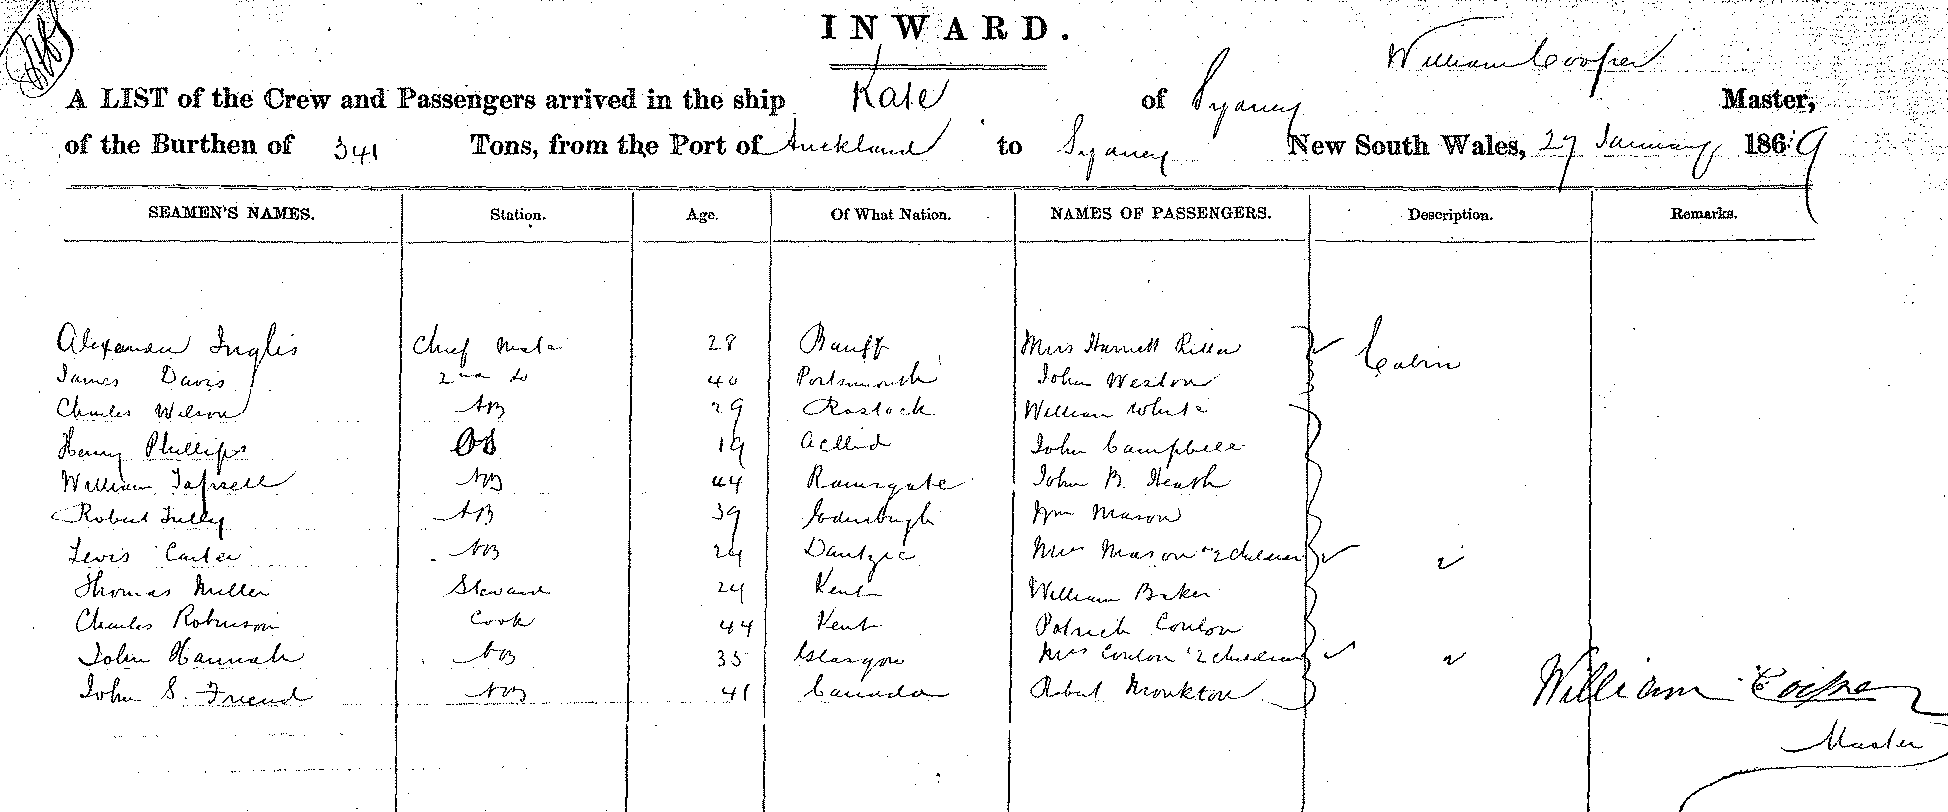 INWARD.
William Cooper
A LIST of the Crew and Passengers arrived in the ship Kate of Sydney Master,
of the Burthen of 341 Tons, from the Port of Auckland to Sydney New South Wales, 27 January 1869
SEAMEN'S NAMES. Station. Age. Of What Nation. NAMES OF PASSENGERS. Description. Remarks.
Alexander Inglis Chief Mate 28 Banff Mrs Harriett Cabin
James Davis 2nd Do 40 Portsmouth John Weston
Charles Wilson AB 29 Rostock William White
Henry Phillips OS 19 John Campbell
William Tapsell AB 44 Ramsgate John B. Heath
Robert Tully AB 39 Edinburgh Wm Mason
Lewis Carter AB 24 Dantzic Mrs Mason & 2 children "
Thomas Miller Steward 24 Kent William Baker
Charles Robinson Cook 44 Kent Patrick Conlon
John Hannah AB 35 Glasgow Mrs Conlon & 2 children "
John S. Friend AB 41 Canada Robert Monkton William Cooper
Master